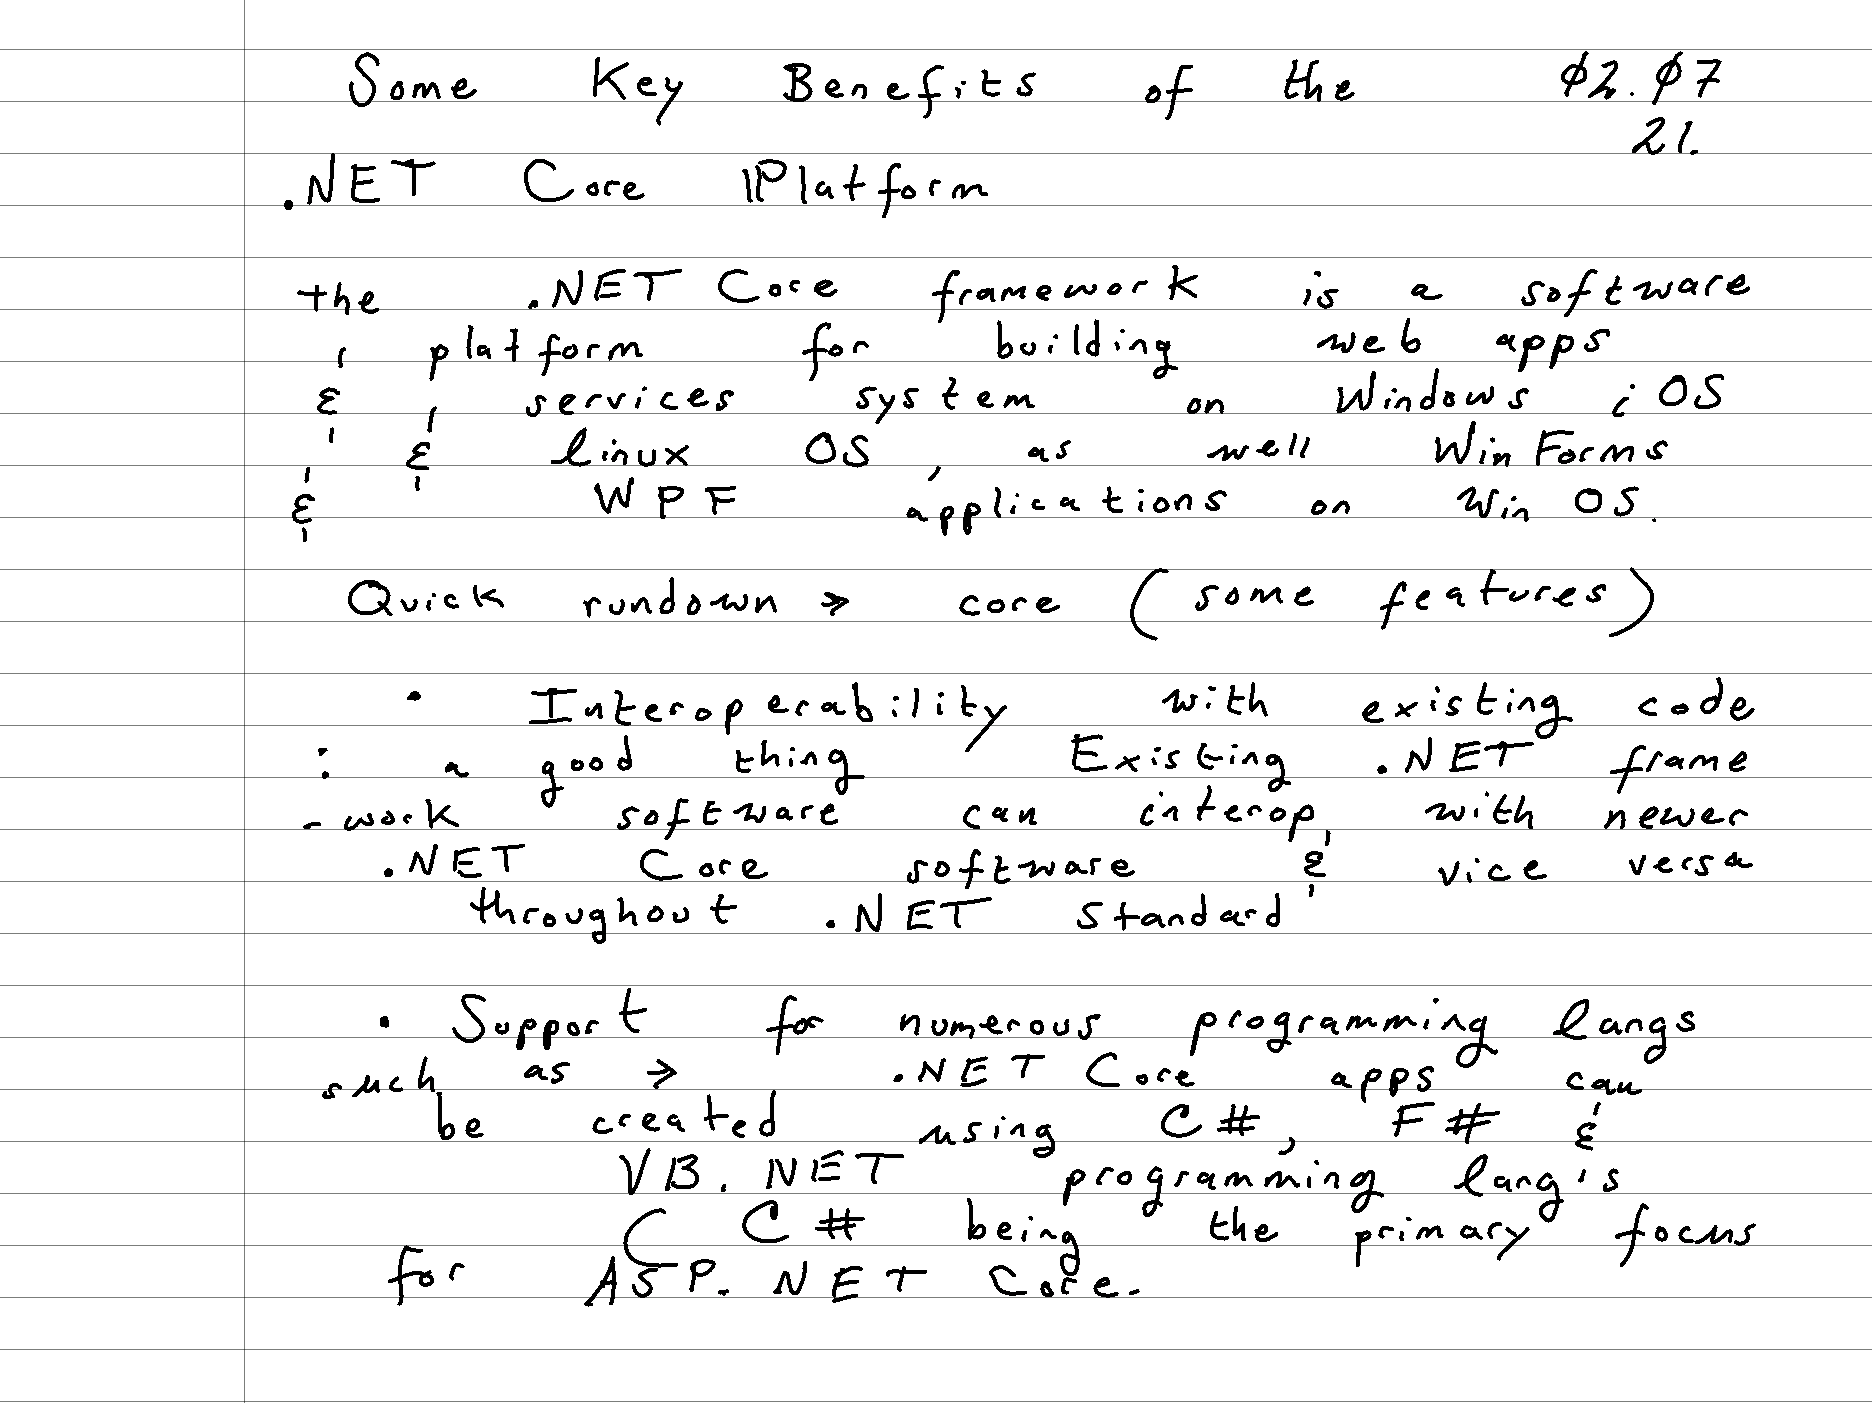 Some Key Benefits of the 02.07
21.
.NET Core Platform
the .NET Core framework is a software
platform for building web apps
& services system on Windows iOS
& linux OS, as well WinForms
& WPF applications on Win OS.
Quick rundown → core (some features)
• Interoperability with existing code
: a good thing Existing .NET frame
-work software can interop, with newer
.NET Core software & vice versa
throughout .NET Standard
• Support for numerous programming langs
such as → .NET Core apps can
be created using C#, F# &
VB.NET programming lang's
( C# being the primary focus
for ASP.NET Core.